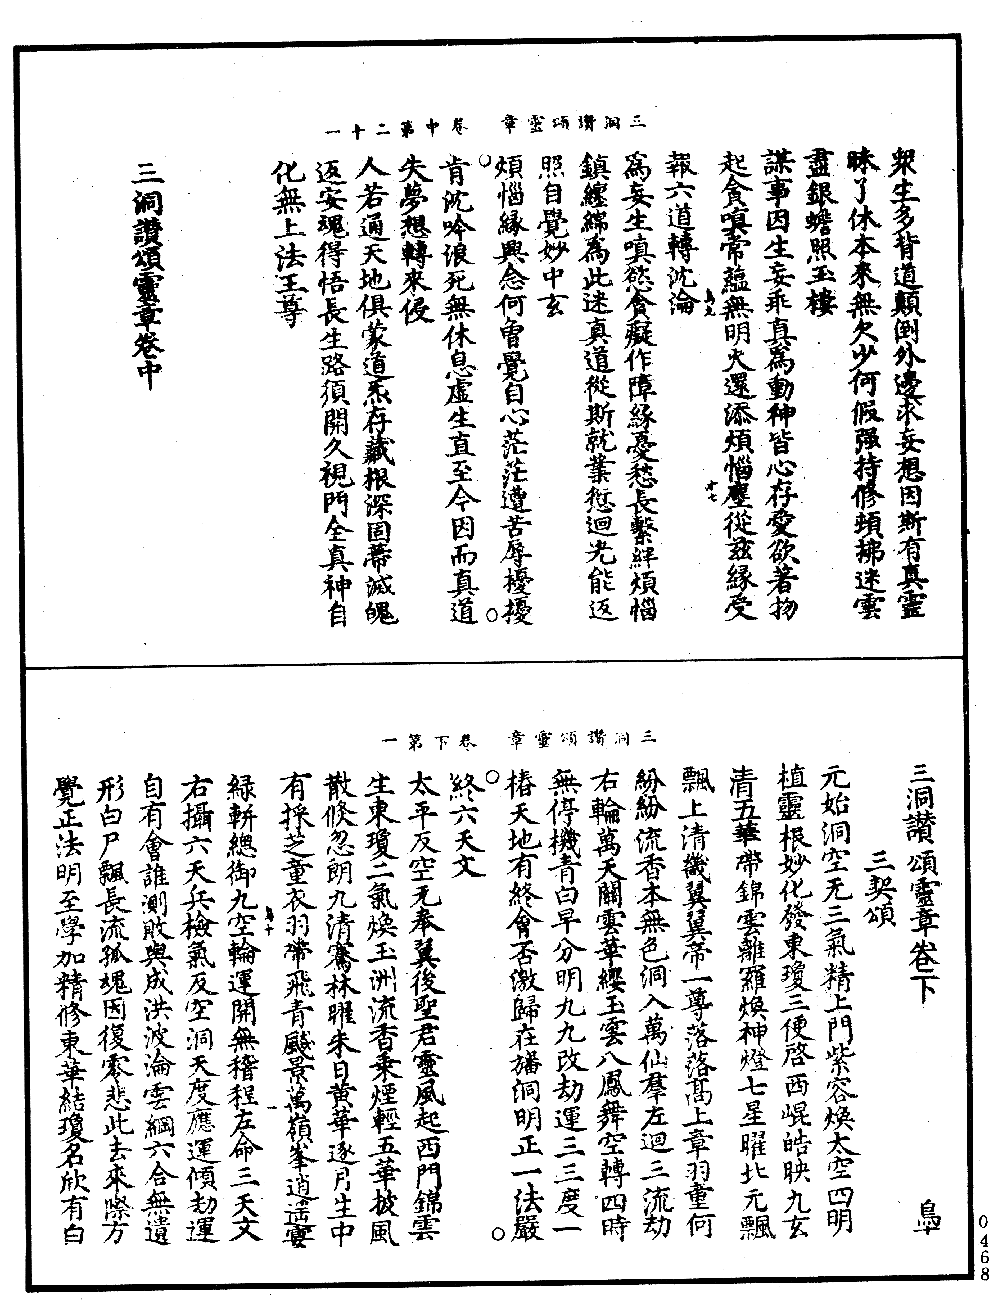 三洞讚頌靈章 卷中第二十一
衆生多背道顛倒外邊求妄想因斯有真靈
昧了休本來無欠少何假强持修頓拂迷雲
盡銀蟾照玉樓
謀事因生妄乖真爲動神皆心存愛欲著物
起貪嗔常蘊無明火還添煩惱塵從兹緣受
報六道轉沈淪
爲妄生嗔慾貪癡作障緣憂愁長繫絆煩惱
鎮纏綿為此迷真道從斯就業愆迴光能返
照自覺妙中玄
煩惱緣興念何曾覺自心茫茫遭苦辱擾擾
肯沈吟浪死無休息虛生直至今因而真道
失夢想轉來侵
人若通天地俱蒙道炁存藏根深固蔕滅魄
返安魂得悟長生路須開久視門全真神自
化無上法王尊
三洞讚頌靈章卷中
三洞讚頌靈章 卷下第一
三洞讚頌靈章卷下
三契頌
元始洞空无三氣精上門紫容煥太空四明
植靈根妙化發東瓊三便啓西崐皓映九玄
清五華帶錦雲離羅煥神燈七星曜北元飄
飄上清畿翼翼帝一尊落落高上章羽童何
紛紛流香本無色洞入萬仙羣左迴三流劫
右輪萬天關雲華纓玉雲八鳳舞空轉四時
無停機青白早分明九九改劫運三三度一
椿天地有終會否激歸在旛洞明正一法嚴
終六天文
太平反空无奉翼後聖君靈風起西門錦雲
生東瓊二氣煥玉洲流香乗煙輕五華披風
散倏忽朗九清騫林曜朱日黄華逐月生中
有採芝童衣羽帶飛青飈景萬嶺峯逍遥宴
緑軿總御九空輪運開無稽程左命三天文
右攝六天兵檢氣反空洞天度應運傾劫運
自有會誰測敗與成洪波淪雲綱六合無遺
形白尸飄長流孤魂因復零悲此去來際方
覺正法明至學加精修東華結瓊名欣有白
0468